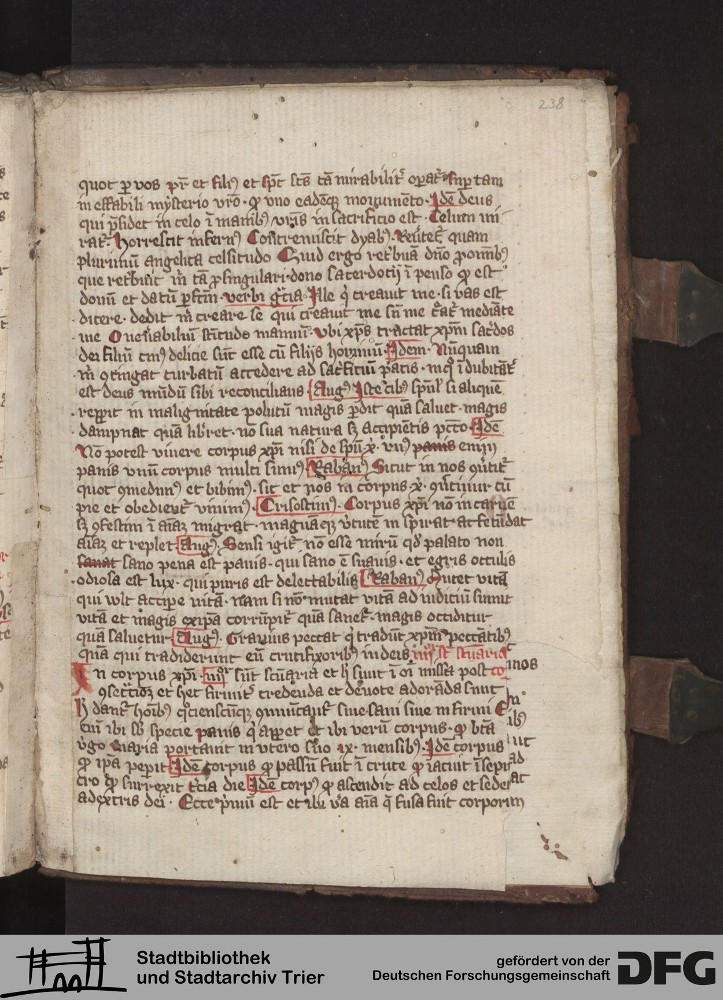 238
quot per vos pr̄ et filiꝰ et spc̄ scs̄ tā mirabilit᷑ oꝑat᷑ sup tam
in effabili mysterio vr̄o · ꝙ vno eadēqꝫ momento · Idē deus
qui p̄sidet in celo ī manibꝰ vr̄is in sacrificio est · Celum mi
rat᷑ · Horrescit infernꝰ Contremiscit dyabꝰ · Reueret᷑ quam
plurimū angelica celsitudo Quid ergo ret͛buā dn̄o ꝓ omībꝰ
que ret͛buit m̄ tā ꝓ singulari dono sacerdotij ī penso ꝙ est
donū et datū ꝑfcm̄ · verbi gr̄cia Ille qͥ creauit me · si fas est
dicere · dedit m̄ creare se qui creauit me sn̄ me creat᷑ mediāte
me O uen̄abiliū sc̄itudo manuū · vbi xp̄s tractat xpm̄ sac͛dos
dei filiū cuiꝰ delicie sūt esse cū filijs hominū · Idem · Nūquam
m̄ ꝯtingat turbatū accedere ad sac͛ficiū pacis · in qͦ ī dubitāt᷑
est deus mūdū sibi reconcilians Augꝰ Iste cibꝰ spūl' si aliquē
repp͛it in malignitate polutū magis ꝑdit quā saluet · magis
dampnat quā lib͛ret · nō sua natura sꝫ accipiētis pcc̄o · Idē
Nō potest viuere corpus xpi nisi de spū x̄ · vnꝰ panis enim
panis vnū corpus multi sumꝰ Rabanꝰ Sicut in nos ꝯūtit᷑
quot ꝯmedimꝰ et bibimꝰ · sic et nos in corpus x̄ · ꝯūtimur cū
pie et obedient᷑ viuimꝰ · Crisostimꝰ · Corpus xpi nō in carnē
sꝫ ꝯfestim ī aīaꝫ migrat · magnāqꝫ v͛tutē in spirat · ac fecūdat
aīaꝫ et replet Augꝰ · Sensi igit᷑ nō esse mirū qd̄ palato non
sanat sano pena est panis · qui sano ē suauis · et egris occulis
odiosa est lux · qui puris est delectabilis Rabanꝰ Mutet vitā
qui wlt accipe vitā · nam si nō mutat vitā ad iudiciū sumit
vitā et magis ex ip̄a corrūpit᷑ quā sanet᷑ · magis occiditur
quā saluetur Augꝰ · Grauius peccāt qͥ tradūt xpm̄ peccātibꝰ
quā qui tradiderunt eū crucifixoribꝰ iudeis iiijᵒʳ st̄ sc̄uaria
In corpus xpi · iiijᵒʳ sūt sc̄uaria et h̄ sūnt ī oī missa post co inos
ꝯsec͛cōꝫ et hec firmit᷑ credenda et deuote adorāda sunt
H̄ dant᷑ hoībꝰ qͦcienscūqꝫ ꝯmūicant᷑ siue sani siue infirmi Et
enī ibi sb̄ specie panis q̄ apꝑet et ibi verū corpus · ꝙ bt̄a
v͛go maria portauit in vtero suo ix · mensibꝰ · Idē corpus ut
ꝙ ip̄a peperit Idē corpus ꝙ passū fuit ī cruce ꝙ iacuit ī sepul
cro ꝙ surrexit t͛cia die Idē corpꝰ ꝙ ascendit ad celos et sedet
ad extris dei · Ecce p̄mū est et ibi va aīa q̄ fusa fuit corporim
Stadtbibliothek
und Stadtarchiv Trier
gefördert von der
Deutschen Forschungsgemeinschaft
DFG